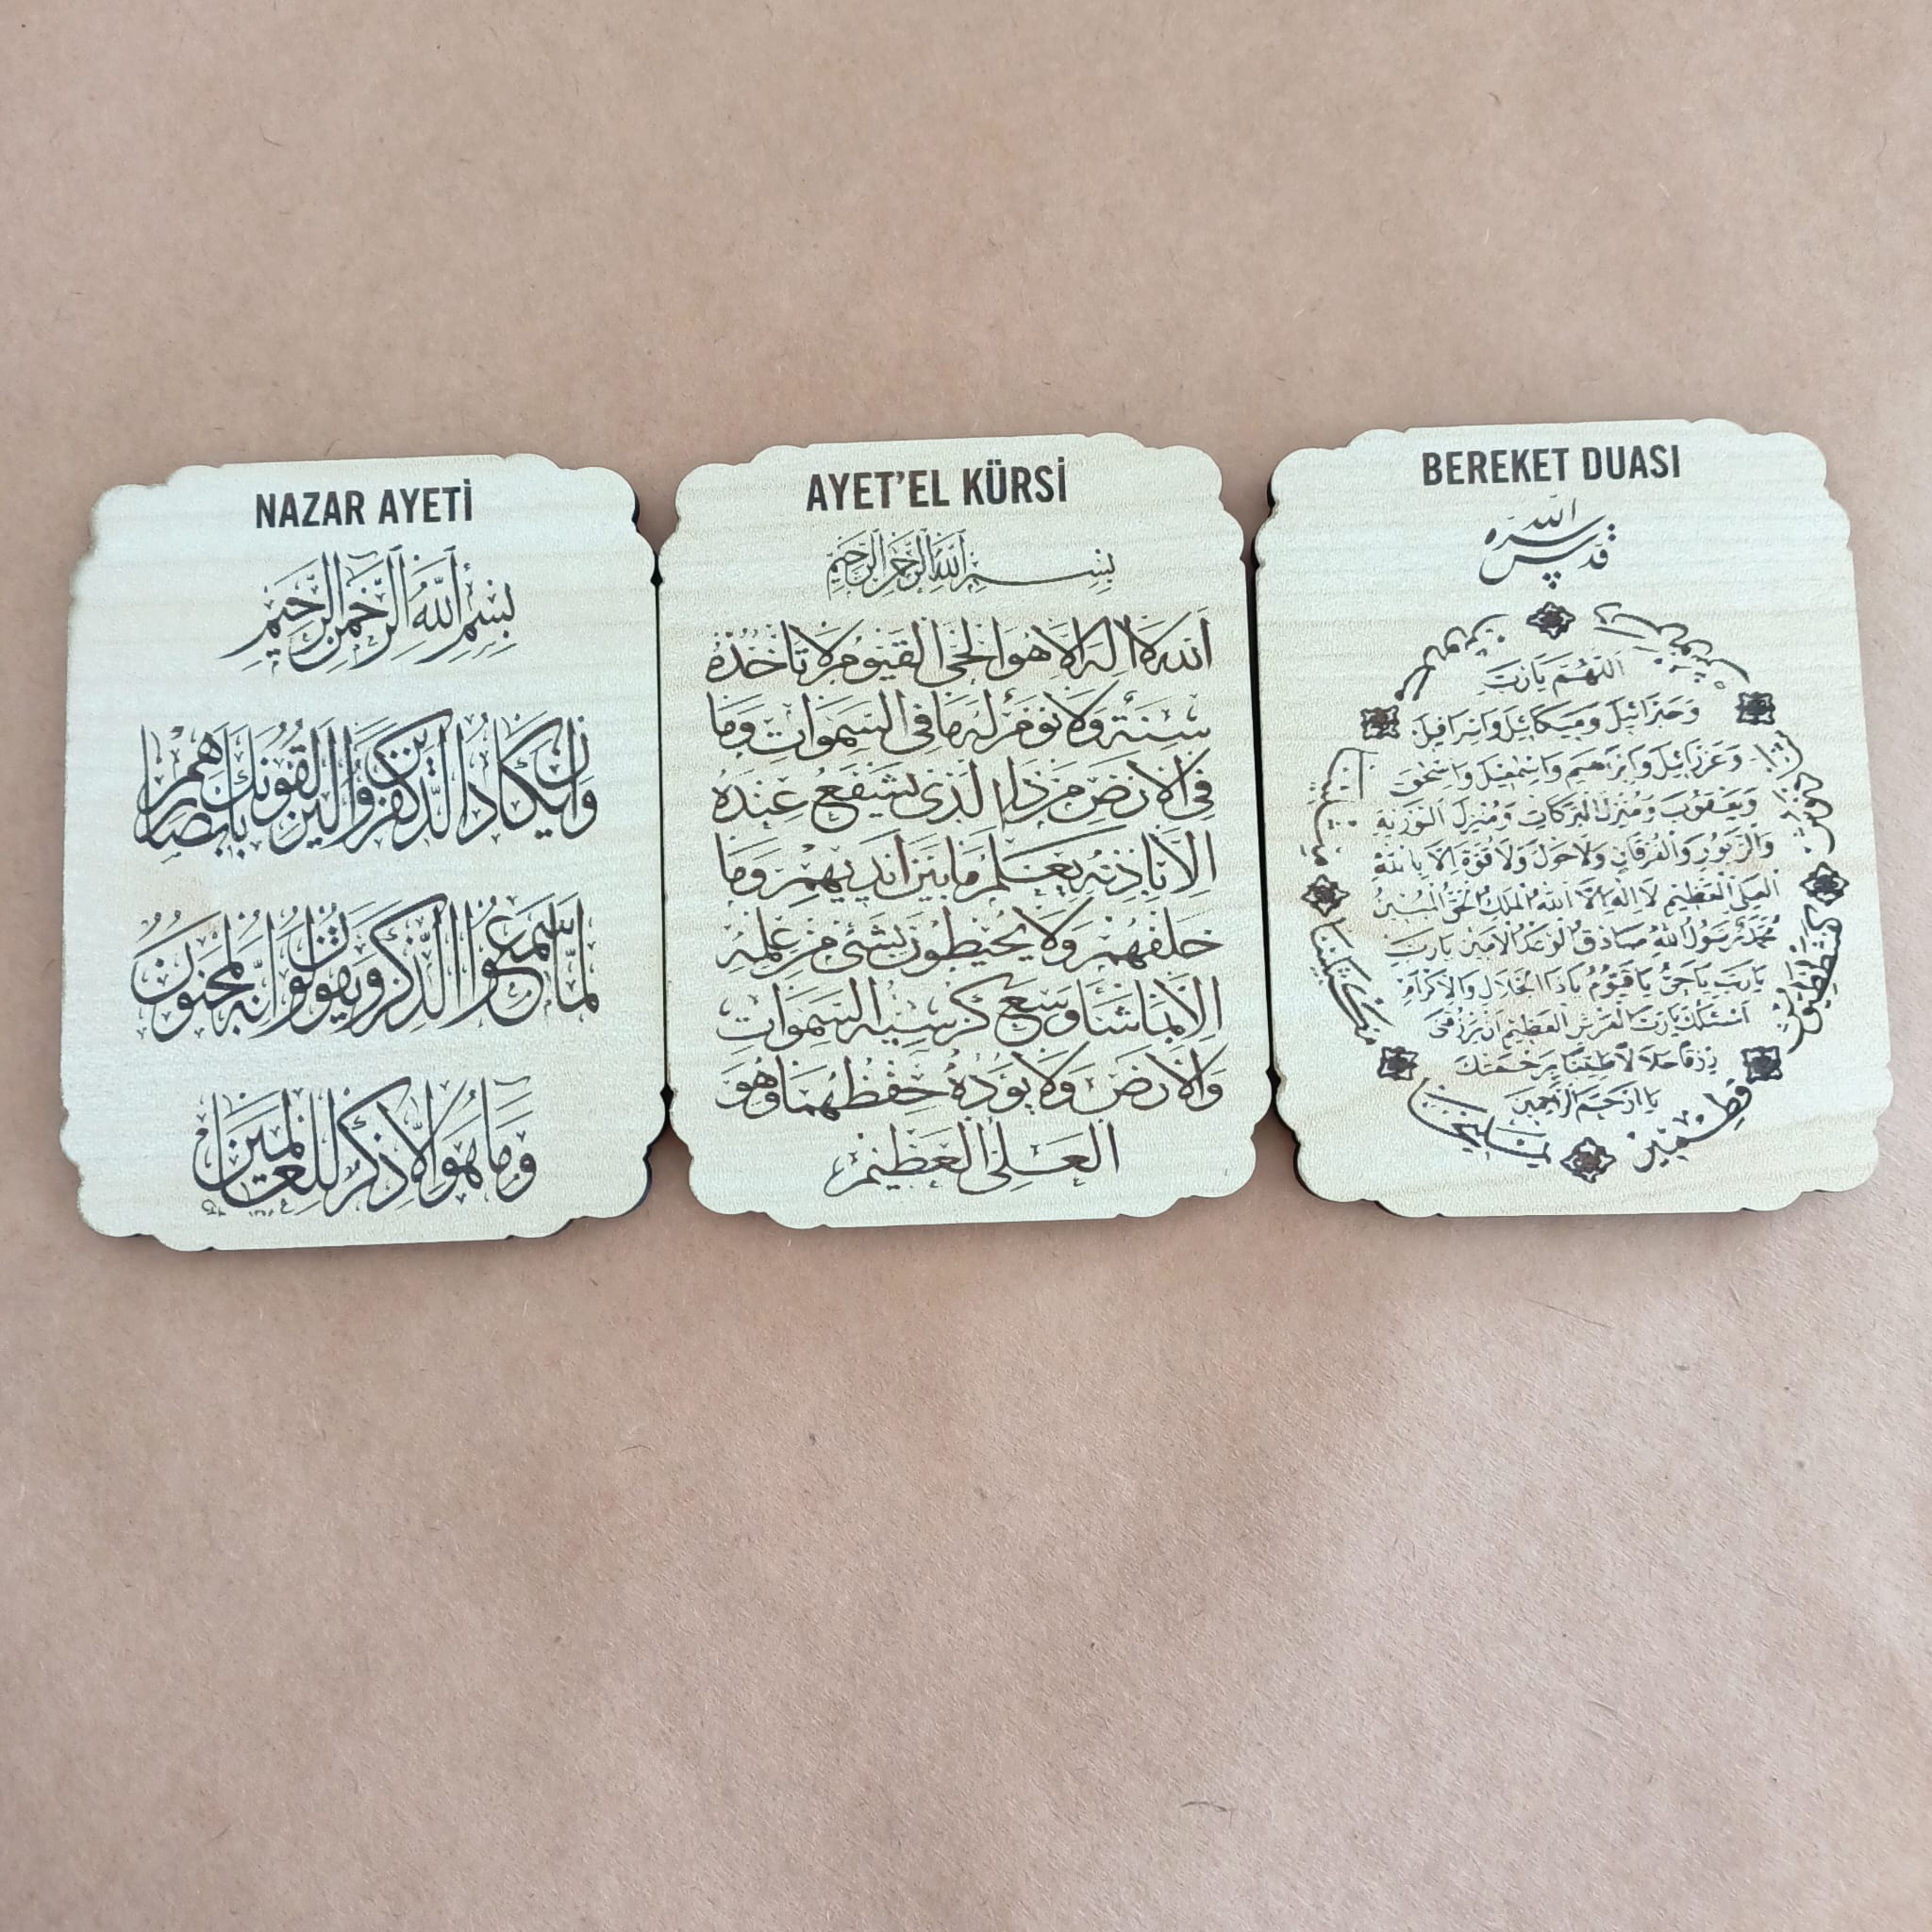 NAZAR AYETİ
بِسْمِ اللّٰهِ الرَّحْمٰنِ الرَّحِيمِ
وَاِنْ يَكَادُ الَّذِينَ كَفَرُوا لَيُزْلِقُونَكَ بِاَبْصَارِهِمْ
لَمَّا سَمِعُوا الذِّكْرَ وَيَقُولُونَ اِنَّهُ لَمَجْنُونٌ
وَمَا هُوَ اِلَّا ذِكْرٌ لِلْعَالَمِينَ
AYET'EL KÜRSİ
بِسْمِ اللّٰهِ الرَّحْمٰنِ الرَّحِيمِ
اَللّٰهُ لَا اِلٰهَ اِلَّا هُوَ الْحَيُّ الْقَيُّومُ لَا تَأْخُذُهُ
سِنَةٌ وَلَا نَوْمٌ لَهُ مَا فِي السَّمٰوَاتِ وَمَا
فِي الْاَرْضِ مَنْ ذَا الَّذِي يَشْفَعُ عِنْدَهُ
اِلَّا بِاِذْنِهِ يَعْلَمُ مَا بَيْنَ اَيْدِيهِمْ وَمَا
خَلْفَهُمْ وَلَا يُحِيطُونَ بِشَيْءٍ مِنْ عِلْمِهِ
اِلَّا بِمَا شَاءَ وَسِعَ كُرْسِيُّهُ السَّمٰوَاتِ
وَالْاَرْضَ وَلَا يَؤُدُهُ حِفْظُهُمَا وَهُوَ
الْعَلِيُّ الْعَظِيمُ
BEREKET DUASI
اللّٰه
قدّس سرّه
اَللّٰهُمَّ يَا رَبَّ
وَجَبْرَائِيلَ وَمِيكَائِيلَ وَاِسْرَافِيلَ
وَعَزْرَائِيلَ وَاِبْرَاهِيمَ وَاِسْمٰعِيلَ وَاِسْحٰقَ
وَيَعْقُوبَ وَمُنْزِلَ الْبَرَكَاتِ وَمُنْزِلَ التَّوْرٰيةِ
وَالزَّبُورِ وَالْفُرْقَانِ وَلَا حَوْلَ وَلَا قُوَّةَ اِلَّا بِاللّٰهِ
الْعَلِيِّ الْعَظِيمِ لَا اِلٰهَ اِلَّا اللّٰهُ الْمَلِكُ الْحَقُّ الْمُبِينُ
مُحَمَّدٌ رَسُولُ اللّٰهِ صَادِقُ الْوَعْدِ الْاَمِينِ يَا رَبِّ
يَا رَبِّ يَا حَيُّ يَا قَيُّومُ يَا ذَا الْجَلَالِ وَالْاِكْرَامِ
اَسْئَلُكَ يَا رَبَّ الْعَرْشِ الْعَظِيمِ اَنْ يَرْزُقَنِي
رِزْقًا حَلَالًا طَيِّبًا بِرَحْمَتِكَ
يَا اَرْحَمَ الرَّاحِمِينَ
يمليخا
مكسلينا
مثلينا
مرنوش
دبرنوش
شاذنوش
كفشططيوش
قطمير